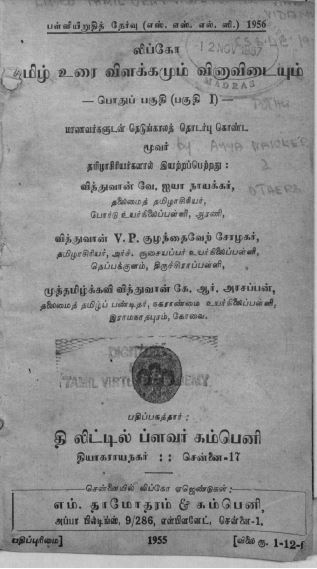 பள்ளியிறுதித் தேர்வு (எஸ். எஸ். எல். ஸி.) 1956
லிப்கோ
தமிழ் உரை விளக்கமும் வினாவிடையும்
— பொதுப் பகுதி (பகுதி I) —
மாணவர்களுடன் நெடுங்காலத் தொடர்பு கொண்ட
மூவர்
தமிழாசிரியர்களால் இயற்றப்பெற்றது :
வித்துவான் வே. ஐயா நாயக்கர்,
தலைமைத் தமிழாசிரியர்,
போர்டு உயர்கிலைப்பள்ளி, ஆரணி,
வித்துவான் V. P. குழந்தைவேற் சோழகர்,
தமிழாசிரியர், அர்ச். சூசையப்பர் உயர்கிலைப்பள்ளி,
தெப்பக்குளம், திருச்சிராப்பள்ளி,
முத்தமிழ்க்கவி வித்துவான் கே. ஆர். அரசப்பன்,
தலைமைத் தமிழ்ப் பண்டிதர், நகராண்மை உயர்கிலைப்பள்ளி,
இராமநாதபுரம், கோவை.
12 NOV 1957
MADRAS
by AYYA NAICKER
2
OTHERS
DIGITI
TAMIL VIRTU DEMY
பதிப்பகத்தார் :
தி லிட்டில் ப்ளவர் கம்பெனி
தியாகராயநகர் :: சென்னை-17
சென்னையில் லிப்கோ ஏஜெண்டுகள் :
எம். தாமோதரம் & கம்பெனி,
அப்பா பில்டிங்ஸ், 9/286, எஸ்பிளனேட், சென்னை-1,
பதிப்புரிமை] 1955 [விலை ரூ. 1-12-